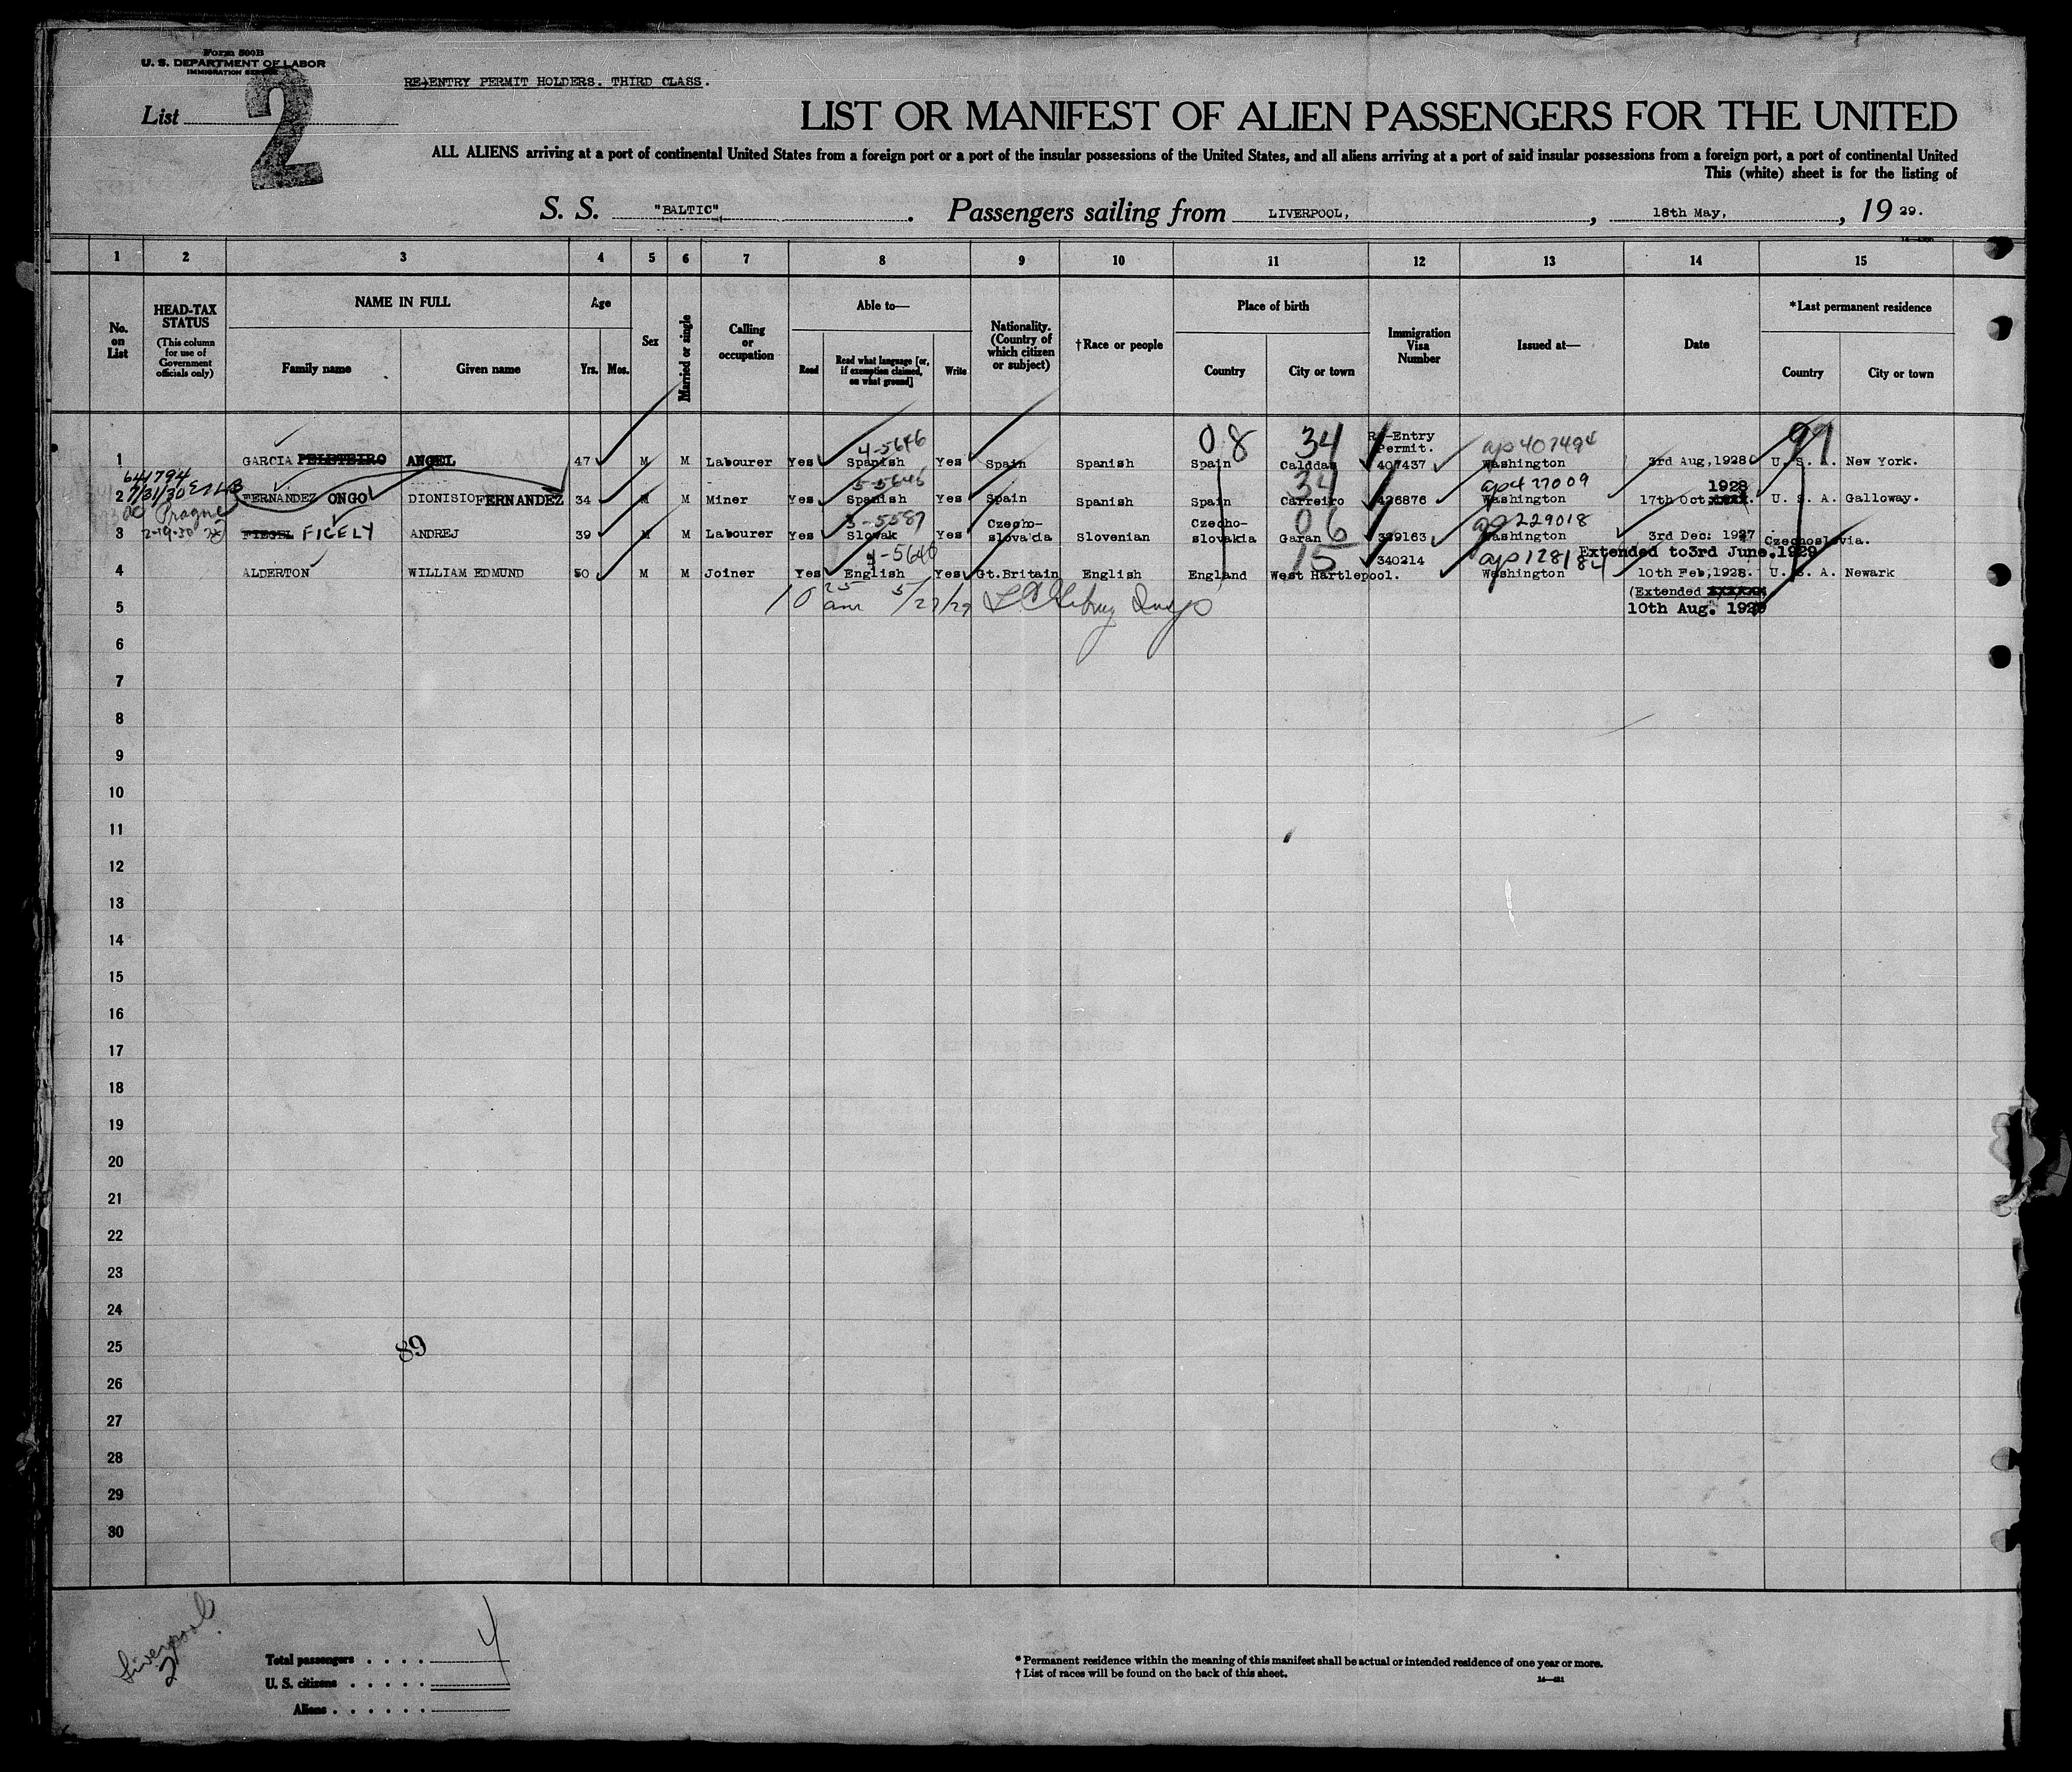 Form 500B
U. S. DEPARTMENT OF LABOR
IMMIGRATION SERVICE
RE-ENTRY PERMIT HOLDERS. THIRD CLASS.
List 2
LIST OR MANIFEST OF ALIEN PASSENGERS FOR THE UNITED
ALL ALIENS arriving at a port of continental United States from a foreign port or a port of the insular possessions of the United States, and all aliens arriving at a port of said insular possessions from a foreign port, a port of continental United
This (white) sheet is for the listing of
S. S. "BALTIC", . Passengers sailing from LIVERPOOL, , 18th May, , 19 29.
1 2 3 4 5 6 7 8 9 10 11 12 13 14 15
No. on List
HEAD-TAX STATUS (This column for use of Government officials only)
NAME IN FULL
Family name Given name
Age
Yrs. Mos.
Sex
Married or single
Calling or occupation
Able to—
Read Read what language [or, if exemption claimed, on what ground] Write
Nationality. (Country of which citizen or subject)
†Race or people
Place of birth
Country City or town
Immigration Visa Number
Issued at—
Date
*Last permanent residence
Country City or town
08 34 Re-Entry Permit. ap 407494 99
4-5646
1 GARCIA PELETEIRO ANGEL 47 M M Labourer Yes Spanish Yes Spain Spanish Spain Calddas 407437 Washington 3rd Aug,1928 U. S. A. New York.
641794
7/31/30
5-5646 34 ap427009 1928
2 FERNANDEZ ONGO DIONISIO FERNANDEZ 34 M M Miner Yes Spanish Yes Spain Spanish Spain Carreiro 426876 Washington 17th Oct U. S. A. Galloway.
Prague
2-19-30
3-5587 06 ap 229018
3 FIEGEL FIGELY ANDREJ 39 M M Labourer Yes Slovak Yes Czecho-slovakia Slovenian Czecho-slovakia Garan 329163 Washington 3rd Dec: 1927 Czechoslovia.
Extended to3rd June.1929
4-5640 15 ap128184
4 ALDERTON WILLIAM EDMUND 50 M M Joiner Yes English Yes Gt.Britain English England West Hartlepool. 340214 Washington 10th Feb,1928. U. S. A. Newark
(Extended
10th Aug. 1929
10 25 am 5/27/29
5
6
7
8
9
10
11
12
13
14
15
16
17
18
19
20
21
22
23
24
25
89
26
27
28
29
30
Liverpool
2
Total passengers . . . . 4
U. S. citizens . . . . .
Aliens . . . . . .
* Permanent residence within the meaning of this manifest shall be actual or intended residence of one year or more.
† List of races will be found on the back of this sheet.